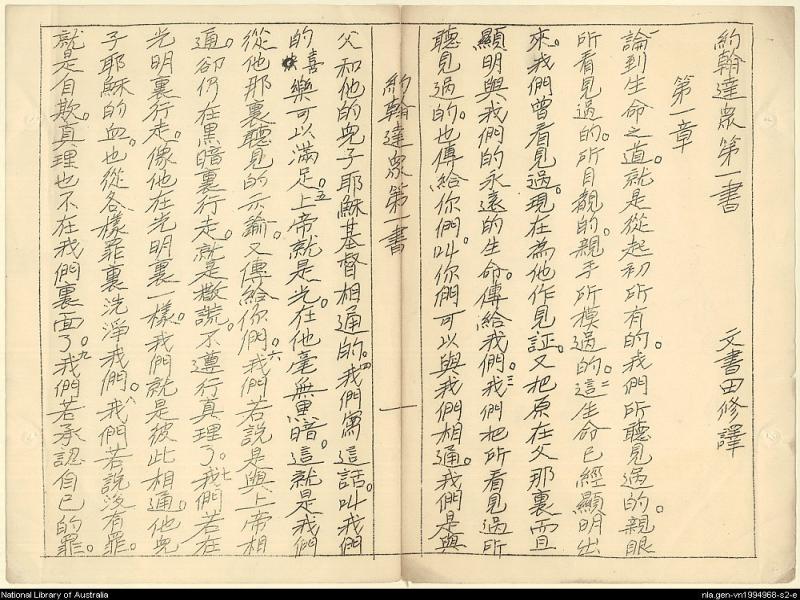 約翰達眾第一書
第一章　文書田修譯
論到生命之道。就是從起初所有的。我們所聽見過的。親眼
所看見過的。所目覩的。親手所摸過的。二這生命已經顯明出
來。我們曾看見過。現在為他作見証。又把原在父那裏而且
顯明與我們的永遠的生命。傳給我們。三我們把所看見過所
聽見過的。也傳給你們。叫你們可以與我們相通。我們是與
約翰達眾第一書　一
父和他的兒子耶穌基督相通的。四我們寫這話。叫我們
的喜樂可以滿足。五上帝就是光。在他毫無黑暗。這就是我們
從他那裏聽見的示諭。又傳給你們。六我們若說是與上帝相
通。卻仍在黑暗裏行走。就是撒謊。不遵行真理了。七我們若在
光明裏行走。像他在光明裏一樣。我們就是彼此相通。他兒
子耶穌的血。也從各樣罪裏洗淨我們。八我們若說沒有罪。
就是自欺。真理也不在我們裏面了。九我們若承認自己的罪。
National Library of Australia
nla.gen-vn1994968-s2-e